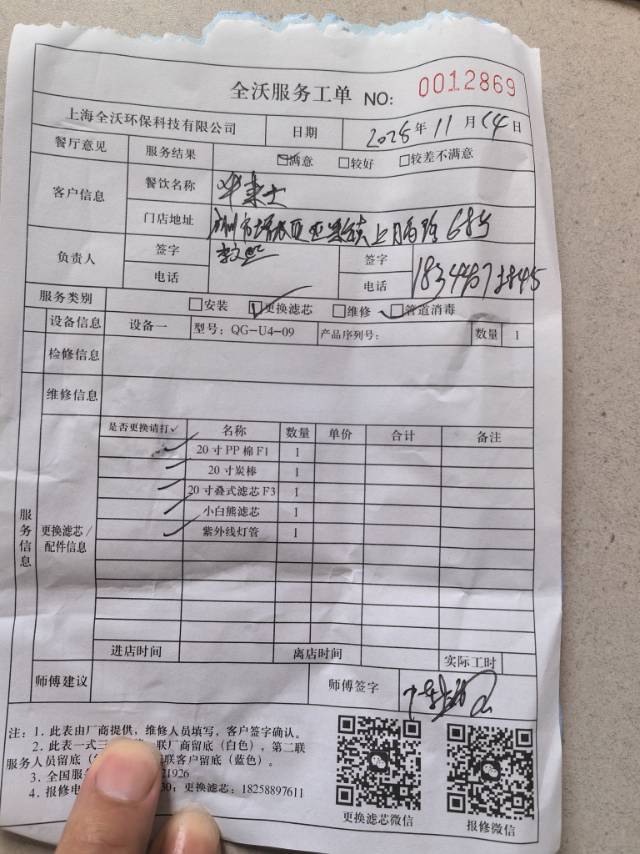 全沃服务工单 NO: 0012869
上海全沃环保科技有限公司 日期 2025年11月14日
餐厅意见 服务结果 ☑满意 □较好 □较差不满意
客户信息 餐饮名称 华莱士
门店地址 68号
负责人 签字 签字
电话 电话
服务类别 □安装 ☑更换滤芯 □维修 ☑管道消毒
设备信息 设备一 型号: QG-U4-09 产品序列号: 数量 1
检修信息
维修信息
是否更换请打✓ 名称 数量 单价 合计 备注
✓ 20寸PP棉F1 1
✓ 20寸炭棒 1
✓ 20寸叠式滤芯F3 1
✓ 小白熊滤芯 1
✓ 紫外线灯管 1
服务信息 更换滤芯/配件信息
进店时间 离店时间 实际工时
师傅建议 师傅签字
注: 1. 此表由厂商提供, 维修人员填写, 客户签字确认。
2. 此表一式三 联厂商留底 (白色), 第二联
服务人员留底 联客户留底 (蓝色)。
3. 全国服务 21926
4. 报修电 30; 更换滤芯: 18258897611
更换滤芯微信 报修微信